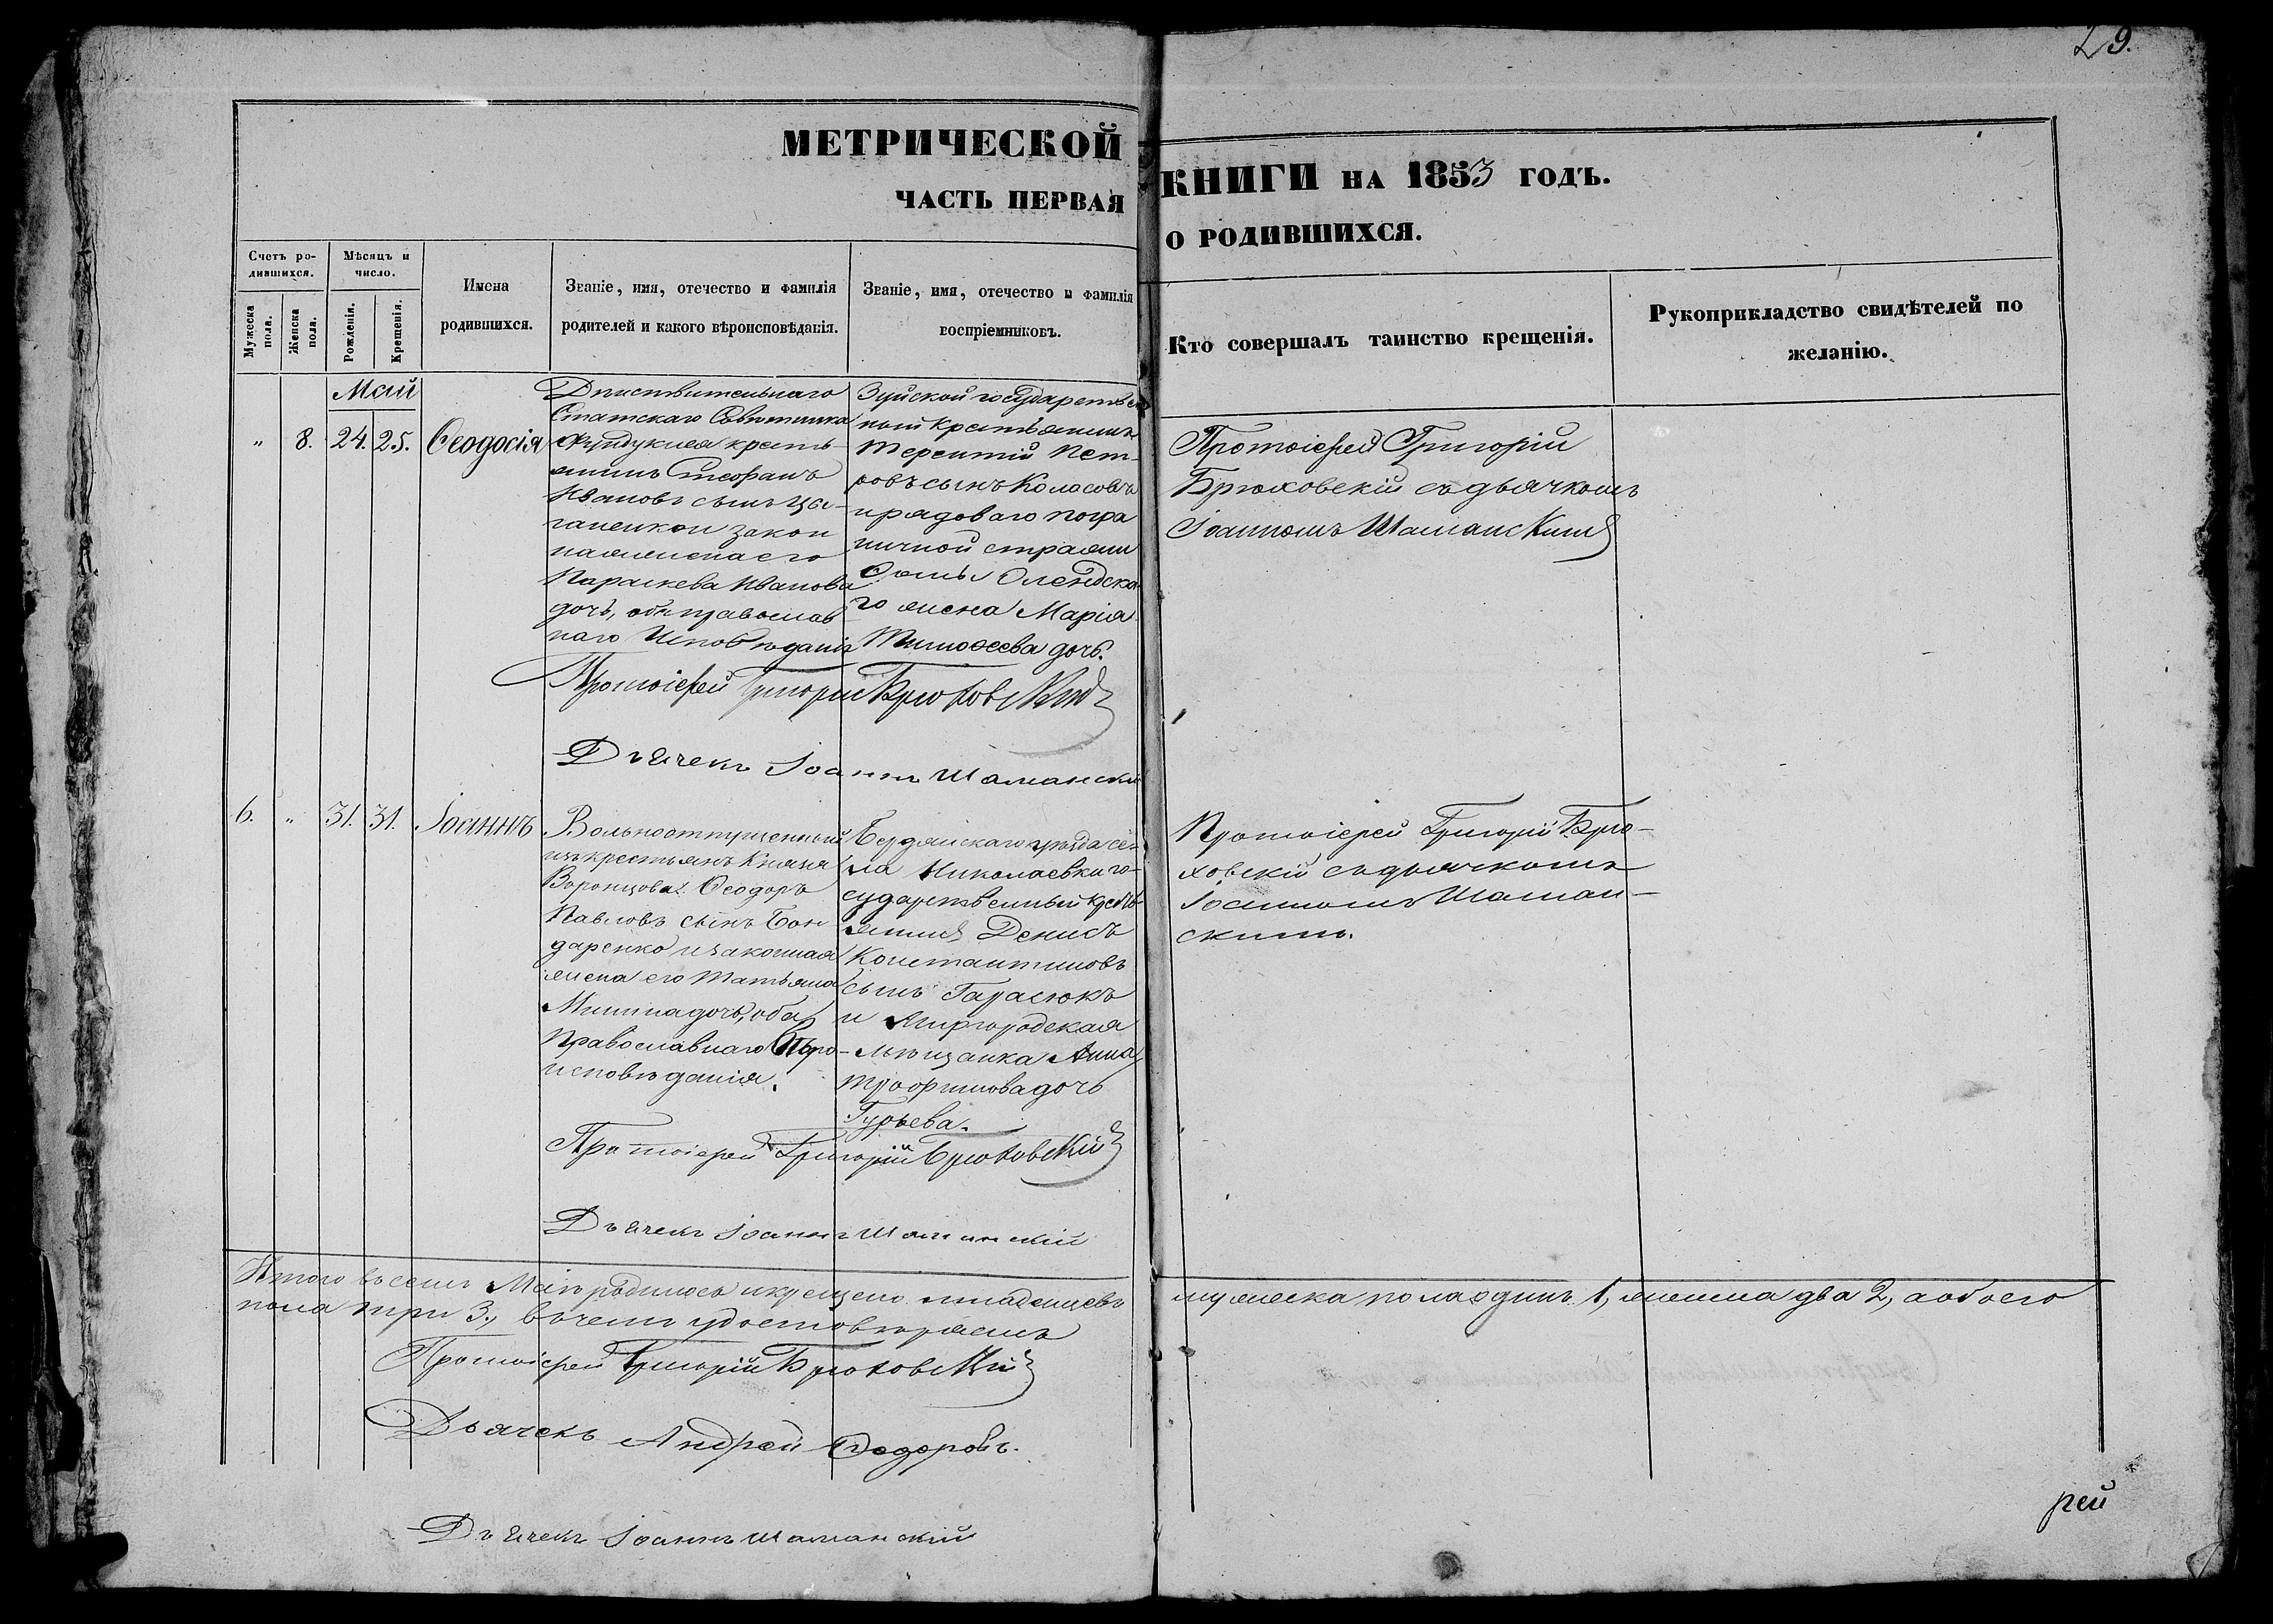 29.
МЕТРИЧЕСКОЙ
ЧАСТЬ ПЕРВАЯ
КНИГИ НА 1853 ГОДЪ.
О РОДИВШИХСЯ.
Счетъ ро-
дившихся.
Мужеска
пола.
Женска
пола.
Мѣсяцъ и
число.
Рожденія.
Крещенія.
Имена
родившихся.
Званіе, имя, отечество и фамилія
родителей и какого вѣроисповѣданія.
Званіе, имя, отечество и фамилія
воспріемниковъ.
Кто совершалъ таинство крещенія.
Рукоприкладство свидѣтелей по
желанію.
Май
" 8. 24. 25. Ѳеодосія
Дѣиствительнаго
Статскаго Совѣтника
Фундуклея кресть-
янинъ Стефанъ
Ивановъ сынъ Цы-
ганенко и закон
ная жена его
Параскева Иванова
дочь, оба православ
наго Исповѣданія
Зуйской государствен
ный крестьянинъ
Терентій Пет-
ровъ сынъ Колосовъ
и рядоваго погра
ничной стражи
Ѳомы Олендска
го жена Марія
Тимоѳеева дочь.
Протоіерей Григорій
Брюховскій съ дьячкомъ
Іоанномъ Шаманскимъ
Протоіерей Григорій Брюховскій
Дьячекъ Іоаннъ Шаманскій
6. " 31. 31. Іоаннъ
Вольноотпущенный
изъ крестьянъ Князя
Воронцова Ѳеодоръ
Павловъ сынъ Бон
даренко и законная
жена его Татьяна
Минина дочь, оба
Православнаго Вѣро-
исповѣданія.
Бердянскаго уѣзда се-
ла Николаевки го-
сударственный кресть
янинъ Денисъ
Константиновъ
сынъ Гарасюкъ
и Миргородская
мѣщанка Анна
Трофимова дочь
Гурьева.
Протоіерей Григорій Брю-
ховскій съ дьячкомъ
Іоанномъ Шаман-
скимъ.
Протоіерей Григорій Брюховскій
Дьячекъ Іоаннъ Шаманскій
Итого въ семъ Маѣ родилось и крещено младенцевъ мужеска пола одинъ 1, женска два 2, а обоего
пола три 3, в чемъ удостовѣряемъ
Протоіерей Григорій Брюховскій
Дьячекъ Андрей Ѳедоровъ.
Дьячекъ Іоаннъ Шаманскій
рей